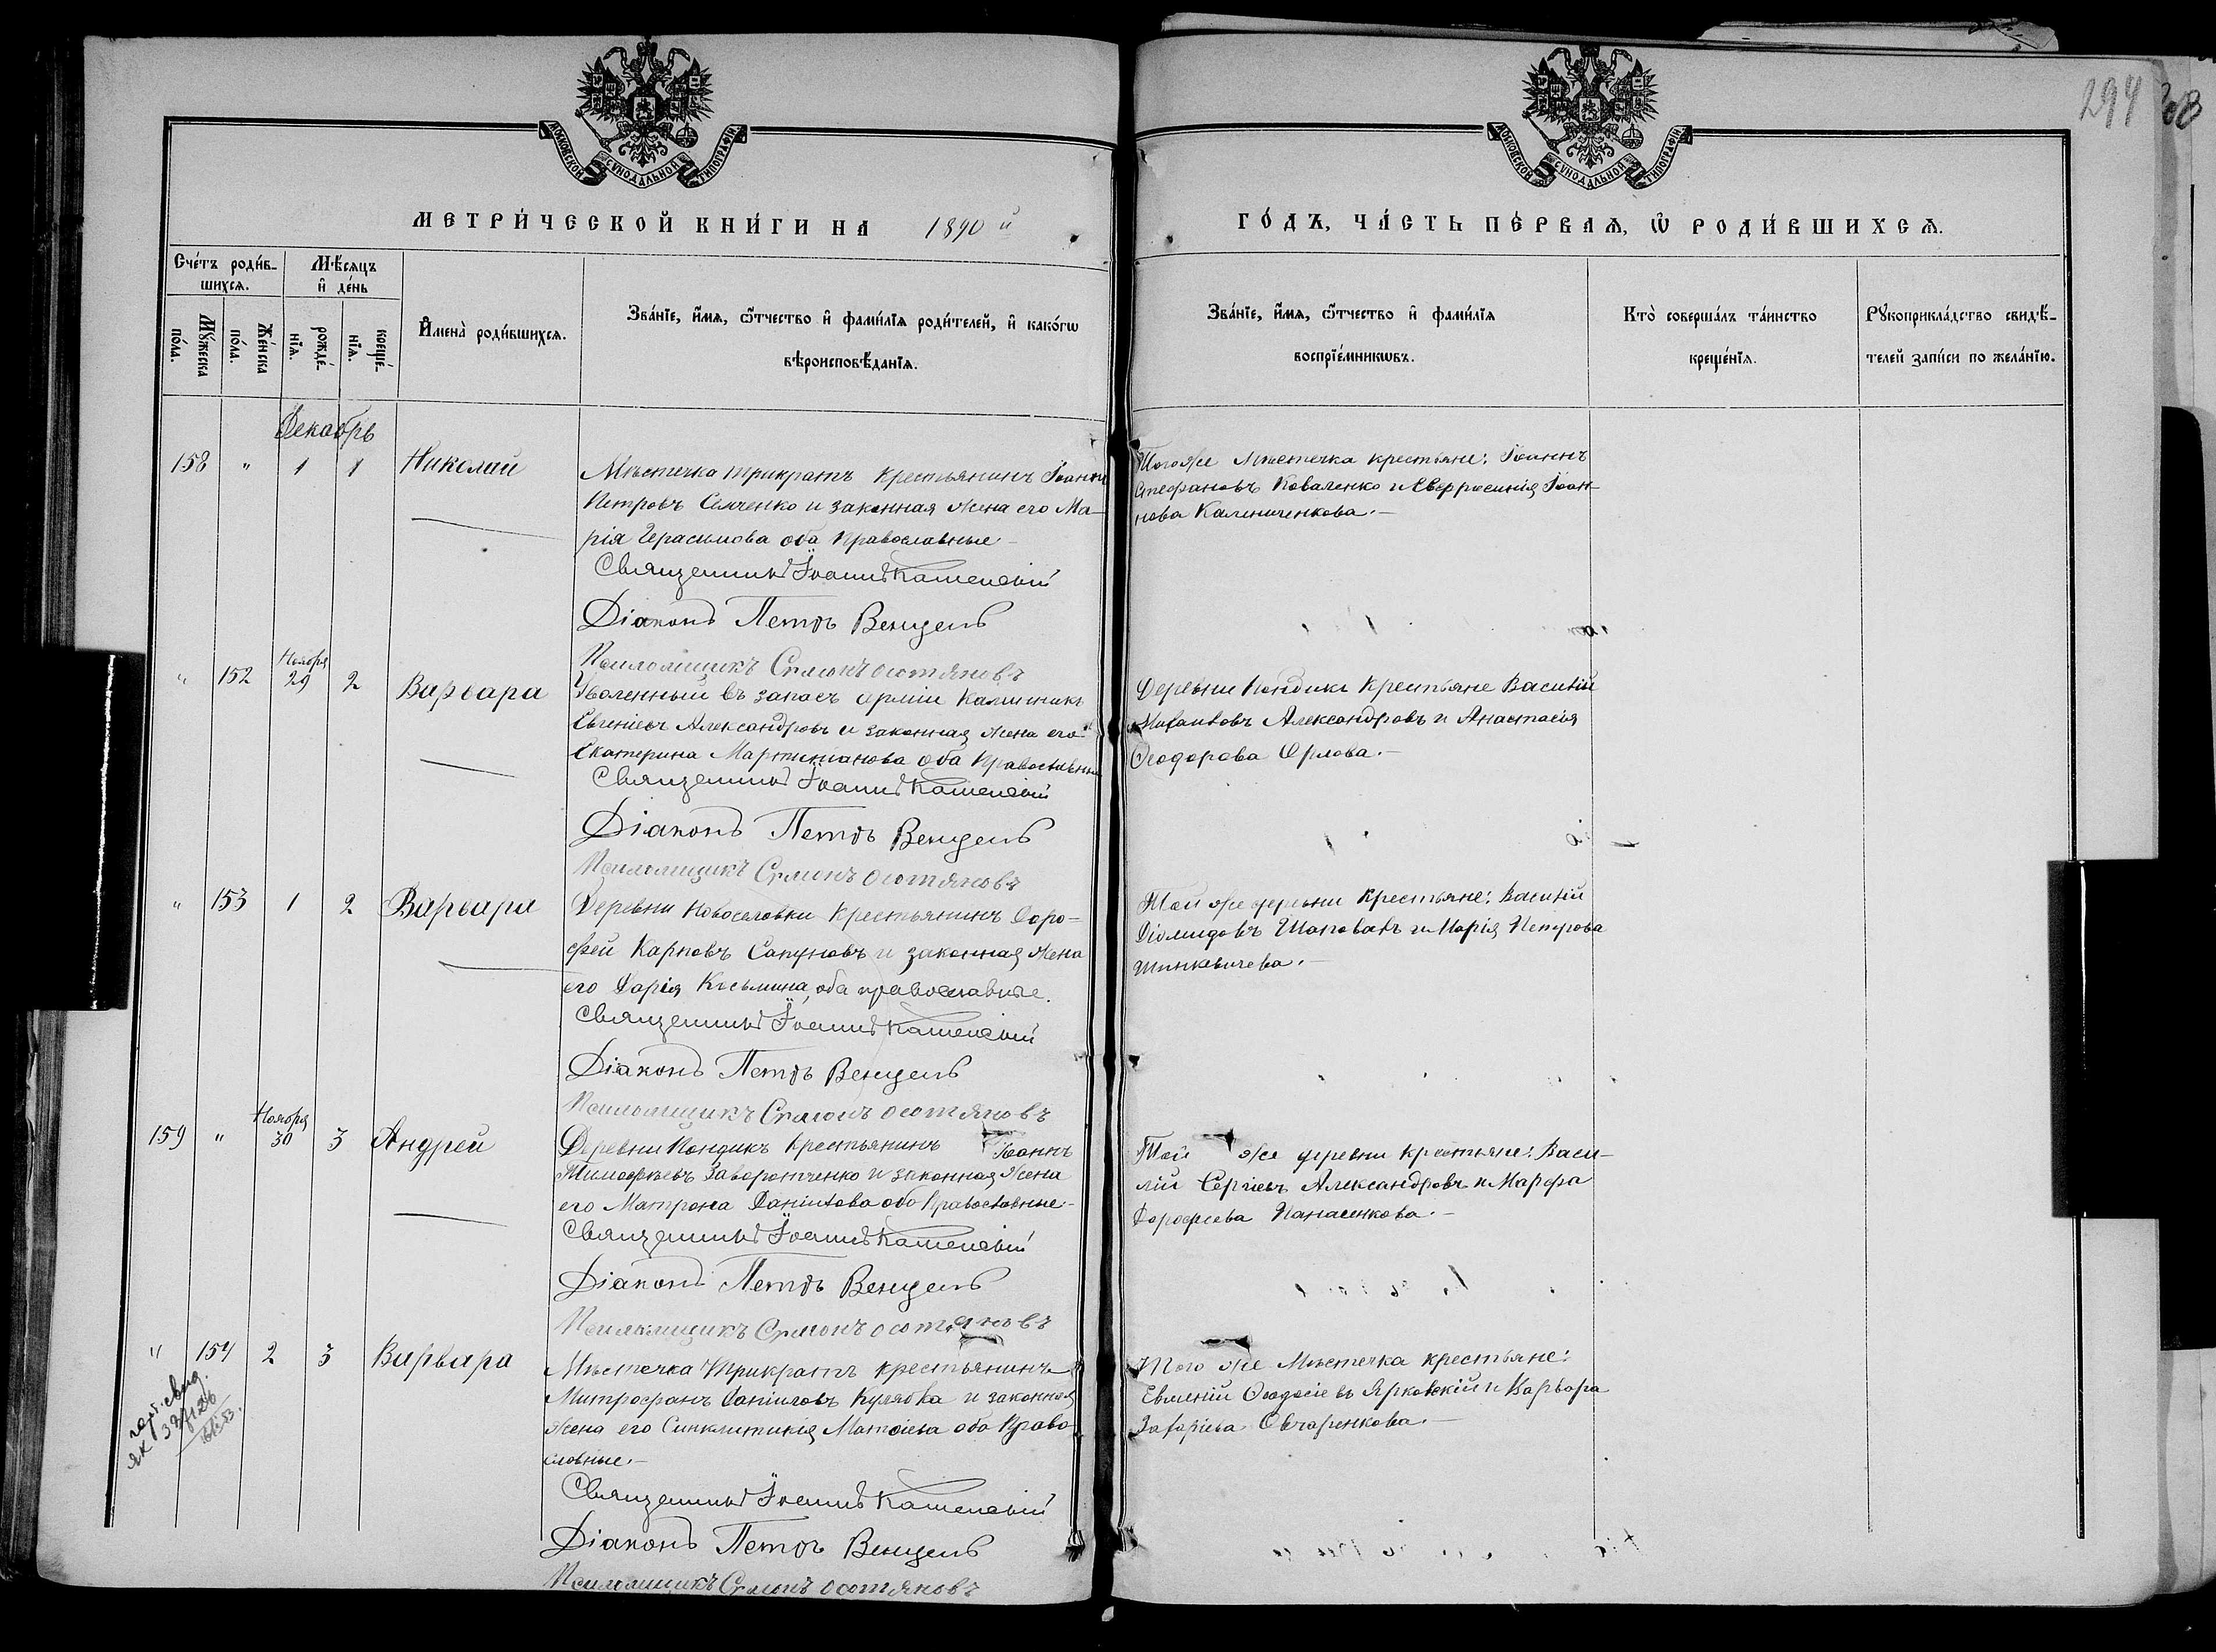 294
МОСКОВСКОЙ СУНОДАЛЬНОЙ ТИПОГРАФІИ
МОСКОВСКОЙ СУНОДАЛЬНОЙ ТИПОГРАФІИ
МЕТРИ́ЧЕСКОЙ КНИ́ГИ НА 1890 й
ГО́ДЪ, ЧА́СТЬ ПЕ́РВАѦ, Ѿ РОДИ́ВШИХСѦ.
Сче́тъ роди́в-
шихсѧ.
Мꙋ́жеска
по́ла.
Же́нска
по́ла.
Мѣ́сѧцъ
и҆ де́нь
рожде́-
нїѧ.
креще́-
нїѧ.
И҆мена̀ роди́вшихсѧ.
Зва́нїе, и҆́мѧ, ѻ҆́тчество и҆ фами́лїѧ роди́телей, и҆ како́гѡ
вѣроисповѣ́данїѧ.
Зва́нїе, и҆́мѧ, ѻ҆́тчество и҆ фами́лїѧ
воспрїе́мникѡвъ.
Кто̀ соверша́лъ та́инство
креще́нїѧ.
Рꙋкоприкла́дство свидѣ́-
телей за́писи по жела́нїю.
Декабрь
158 " 1 1 Николай
Мѣстечка Трикратъ крестьянинъ Іоаннъ
Петровъ Семченко и законная жена его Ма-
рія Герасимова оба православные
Священникъ Іоаннъ Каменскій
Діаконъ Петръ Венцель
Псаломщикъ
Того же Мѣстечка крестьяне: Іоаннъ
Стефановъ Коваленко и Евфросинія Іоан-
нова Калениченкова.—
" 152 Ноября 29 2 Варвара
Уволенный въ запасъ арміи
Евгеніевъ Александровъ и законная жена его
Екатерина Мартиніанова оба православные
Священникъ Іоаннъ Каменскій
Діаконъ Петръ Венцель
Псаломщикъ
Деревни Кандика крестьяне Василій
Михаиловъ Александровъ и Анастасія
Ѳеодорова Орлова.—
" 153 1 2 Варвара
Деревни Новоселовки крестьянинъ Доро-
фей Карповъ Сапуновъ и законная жена
его Дарія Косьмина, оба православные.
Священникъ Іоаннъ Каменскій
Діаконъ Петръ Венцель
Псаломщикъ
Той же деревни крестьяне: Василій
Діомидовъ Шаповалъ и Марія Петрова
Шинкевичева.—
159 " Ноября 30 3 Андрей
Деревни Кандикъ крестьянинъ Іоаннъ
Тимофѣевъ Заворотченко и законная жена
его Матрона Даніилова оба православные-
Священникъ Іоаннъ Каменскій
Діаконъ Петръ Венцель
Псаломщикъ
Той же деревни крестьяне: Васи-
лій Сергіевъ Александровъ и Марфа
Дорофеева Панасенкова.—
" 154 2 3 Варвара
Мѣстечка Трикратъ крестьянинъ
Митрофанъ Даніиловъ Кулябка и законная
жена его Синклитикія Матѳіева оба право
славные.—
Священникъ Іоаннъ Каменскій
Діаконъ Петръ Венцель
Псаломщикъ
Того же Мѣстечка крестьяне:
Евменій Ѳеодосіевъ Ярковскій и Варвара
Захаріева Овчаренкова.—